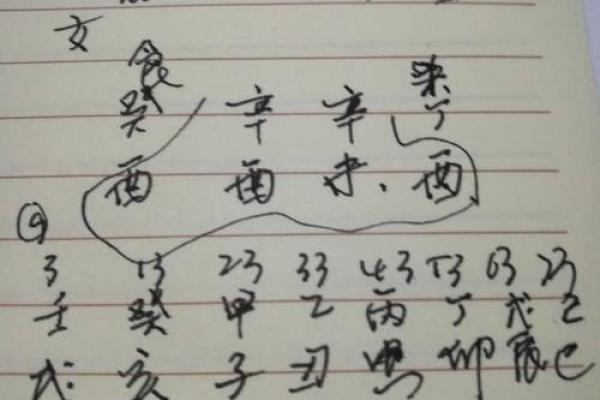 文
食 杀
癸 辛 辛 丁
酉 酉 未、酉
3 13 23 33 43 53 63 73
壬 癸 甲 乙 丙 丁 戊 己
戌 亥 子 丑 寅 卯 辰 巳